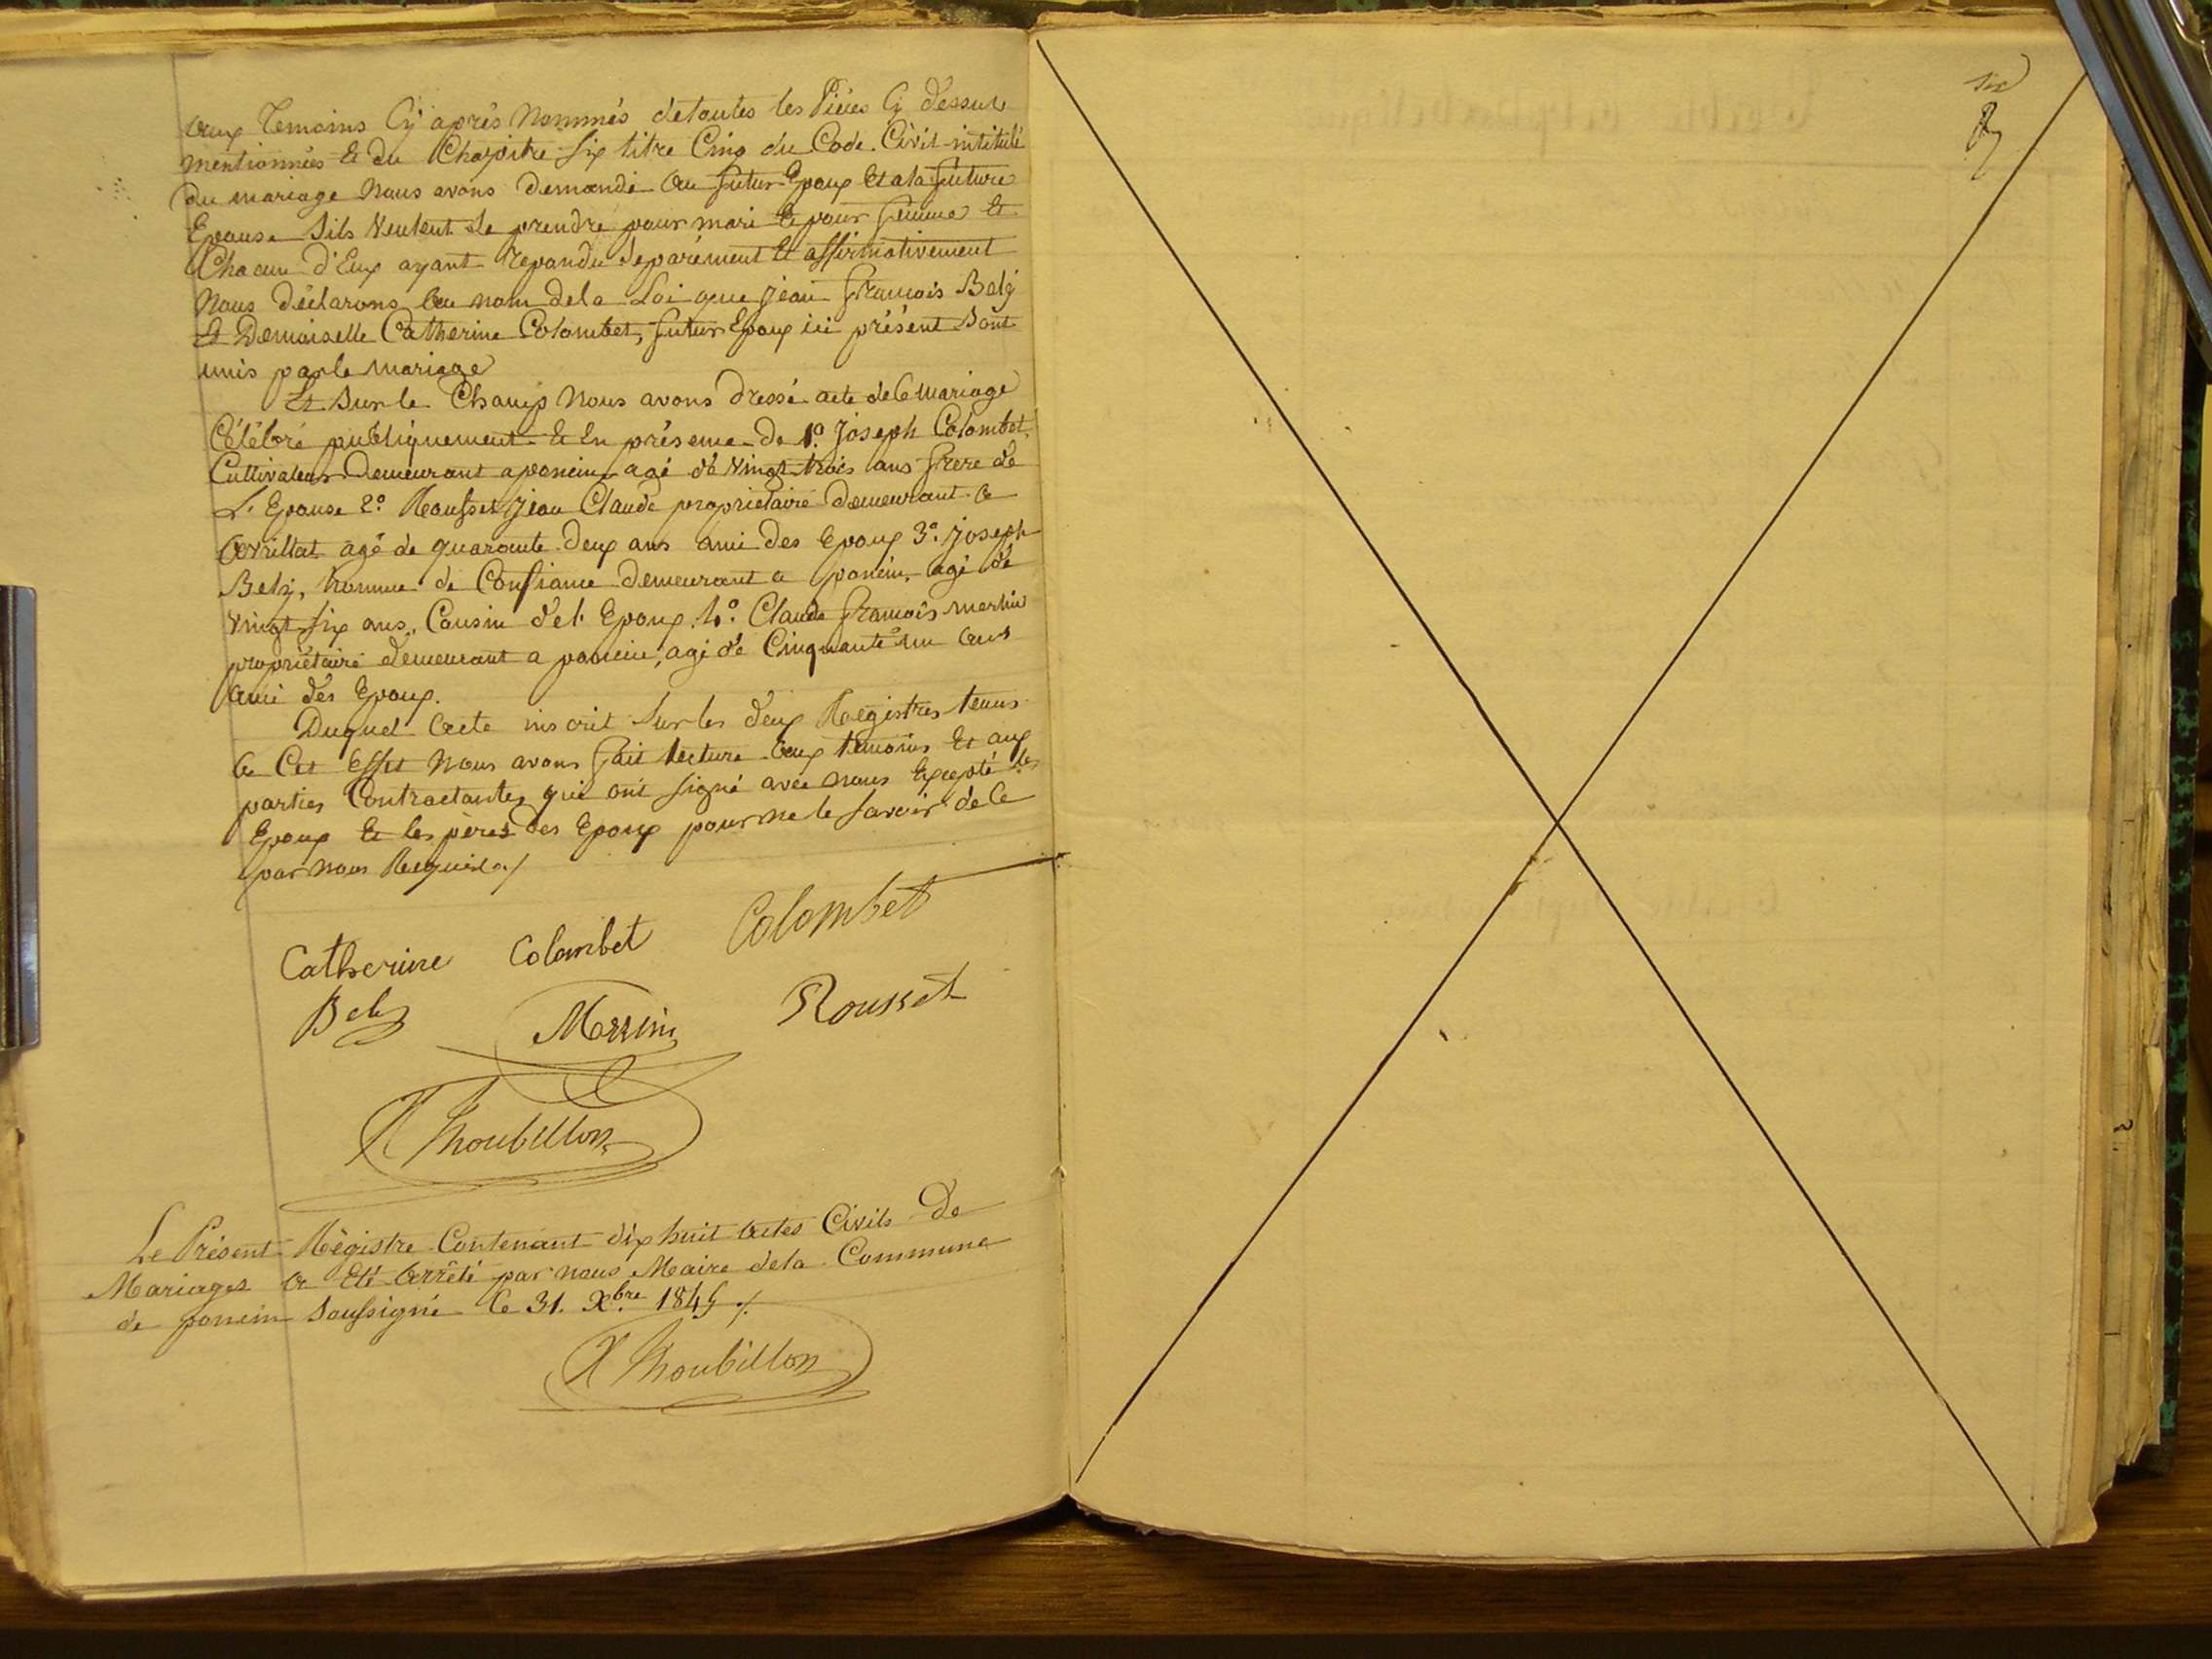 aux Temoins Cy après Nommés de toutes les Pièces Cy dessus
mentionnées Et du Chapitre Six titre Cinq du Code Civil intitulé
Du mariage Nous avons demandé Au futur Epoux Et a la future
Epouse Sils Veulent Se prendre pour mari Et pour femme Et
Chacun d'Eux ayant répondu Séparément Et affirmativement
Nous déclarons Au nom de la Loi que Jean François Bely
Et Demoiselle Catherine Colombet, futur Epoux ici présent Sont
unis par le mariage
Et Sur le Champ Nous avons dressé acte de Ce mariage
Célébré publiquement Et En présence De 1º Joseph Colombet
Cultivateur Demeurant a poncin agé de Vingt trois ans frere de
L'Epouse 2º Rousset Jean Claude propriétaire demeurant a
Avrillat agé de quarante deux ans ami des Epoux 3º Joseph
Bely, homme de Confiance demeurant a poncin, agé de
Vingt Six ans, Cousin de l'Epoux, 4º Claude François merlin
propriétaire demeurant a poncin, agé de Cinquante un ans
Ami des Epoux.
Duquel Acte inscrit Sur les deux Régistres tenus
A Cet Effet Nous avons fait lecture aux temoins Et aux
parties Contractantes qui ont Signé avec nous Excepté les
Epoux Et les pères des Epoux pour ne le Savoir de Ce
par nous Requis ./
Catherine Colombet Colombet
Bely Rousset
Thoubillon
Le Présent Régistre Contenant dix huit Actes Civils De
Mariages A Eté Arrêté par nous Maire de la Commune
de poncin Soussigné Ce 31. Xbre 1845 ./.
Thoubillon
six